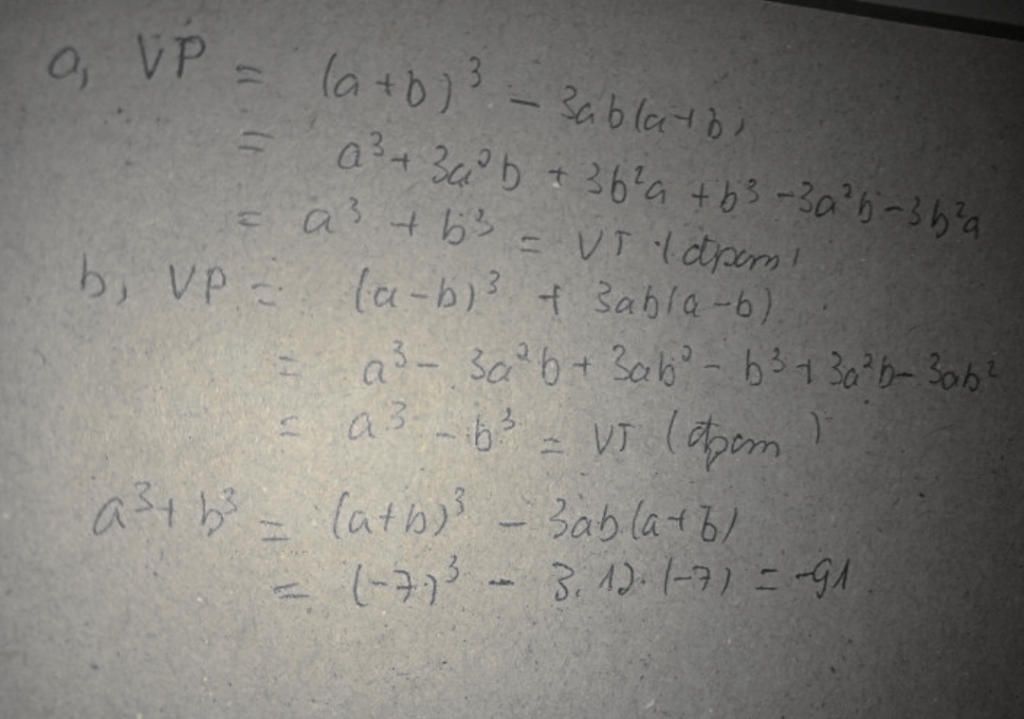 a, VP = (a+b)³ - 3ab(a+b)
= a³ + 3a²b + 3b²a + b³ - 3a²b - 3b²a
= a³ + b³ = VT (đpcm)
b, VP = (a-b)³ + 3ab(a-b)
= a³ - 3a²b + 3ab² - b³ + 3a²b - 3ab²
= a³ - b³ = VT (đpcm)
a³ + b³ = (a+b)³ - 3ab.(a+b)
= (-7)³ - 3.12.(-7) = -91